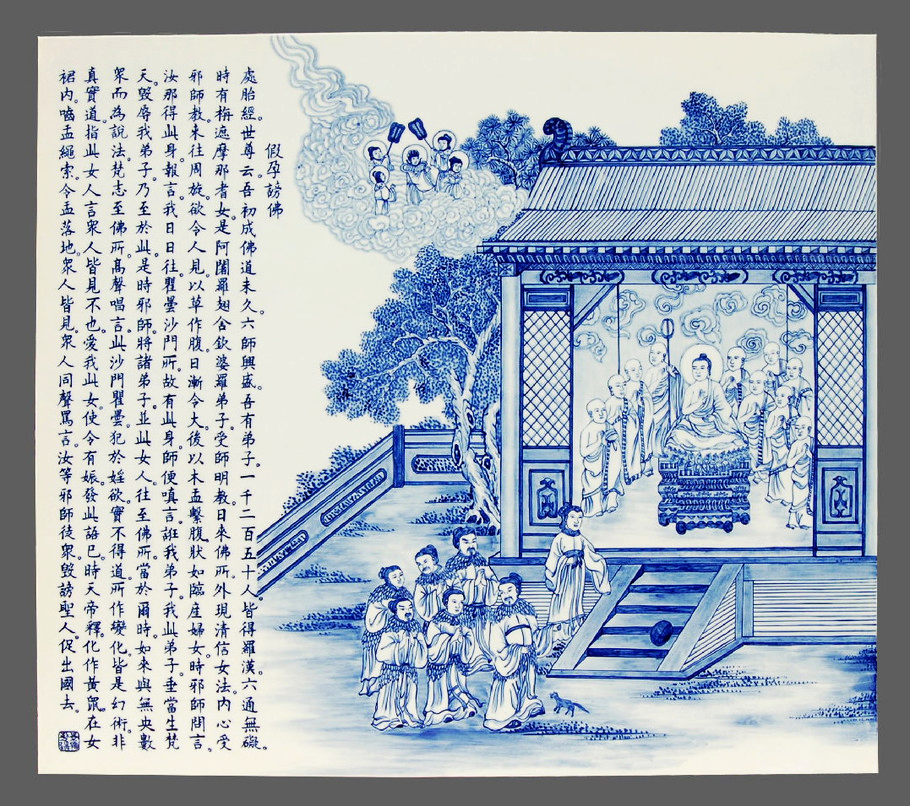 假孕謗佛
處胎經世尊云吾初成佛道未久六師興盛吾有弟子一千二百五十人皆得羅漢六通無礙
時有栴遮摩那耆女是阿闍羅翅舍欽婆羅弟子受師明教日來佛所外現清信女法內心受
邪師教朱往周旋欲令人見以草作腹日漸令大後以木盂繫腹狀如臨産婦女時邪師問言
汝那得此身報言我日日往瞿曇沙門所故有此身師便嗔言誑我弟子我此弟子垂當生梵
天毀辱我弟子乃至於此是時邪師將諸弟子並此女人往至佛所當於爾時如來與無央數
衆而為說法梵志至佛所高聲唱言此沙門瞿曇犯於婬欲實不得道所作變化皆是幻術非
真實道指此女人言衆人皆見不也愛我此女使令有娠發此語已時天帝釋化作黃鼠在女
裙內嚙盂繩索令盂落地衆人皆見衆人同聲罵言汝等邪師徒衆毀謗聖人促出國去